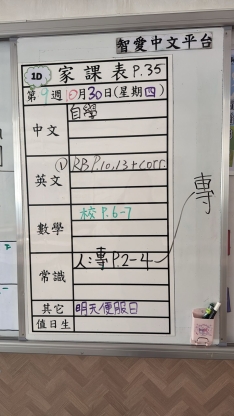 智愛中文平台
1D 家課表 P.35
第9週 10月30日(星期四)
中文 自學
英文 ① RB P.10,13+corr.
數學 校 P.6-7
常識 人:專 P.2-4
專
其它 明天便服日
值日生